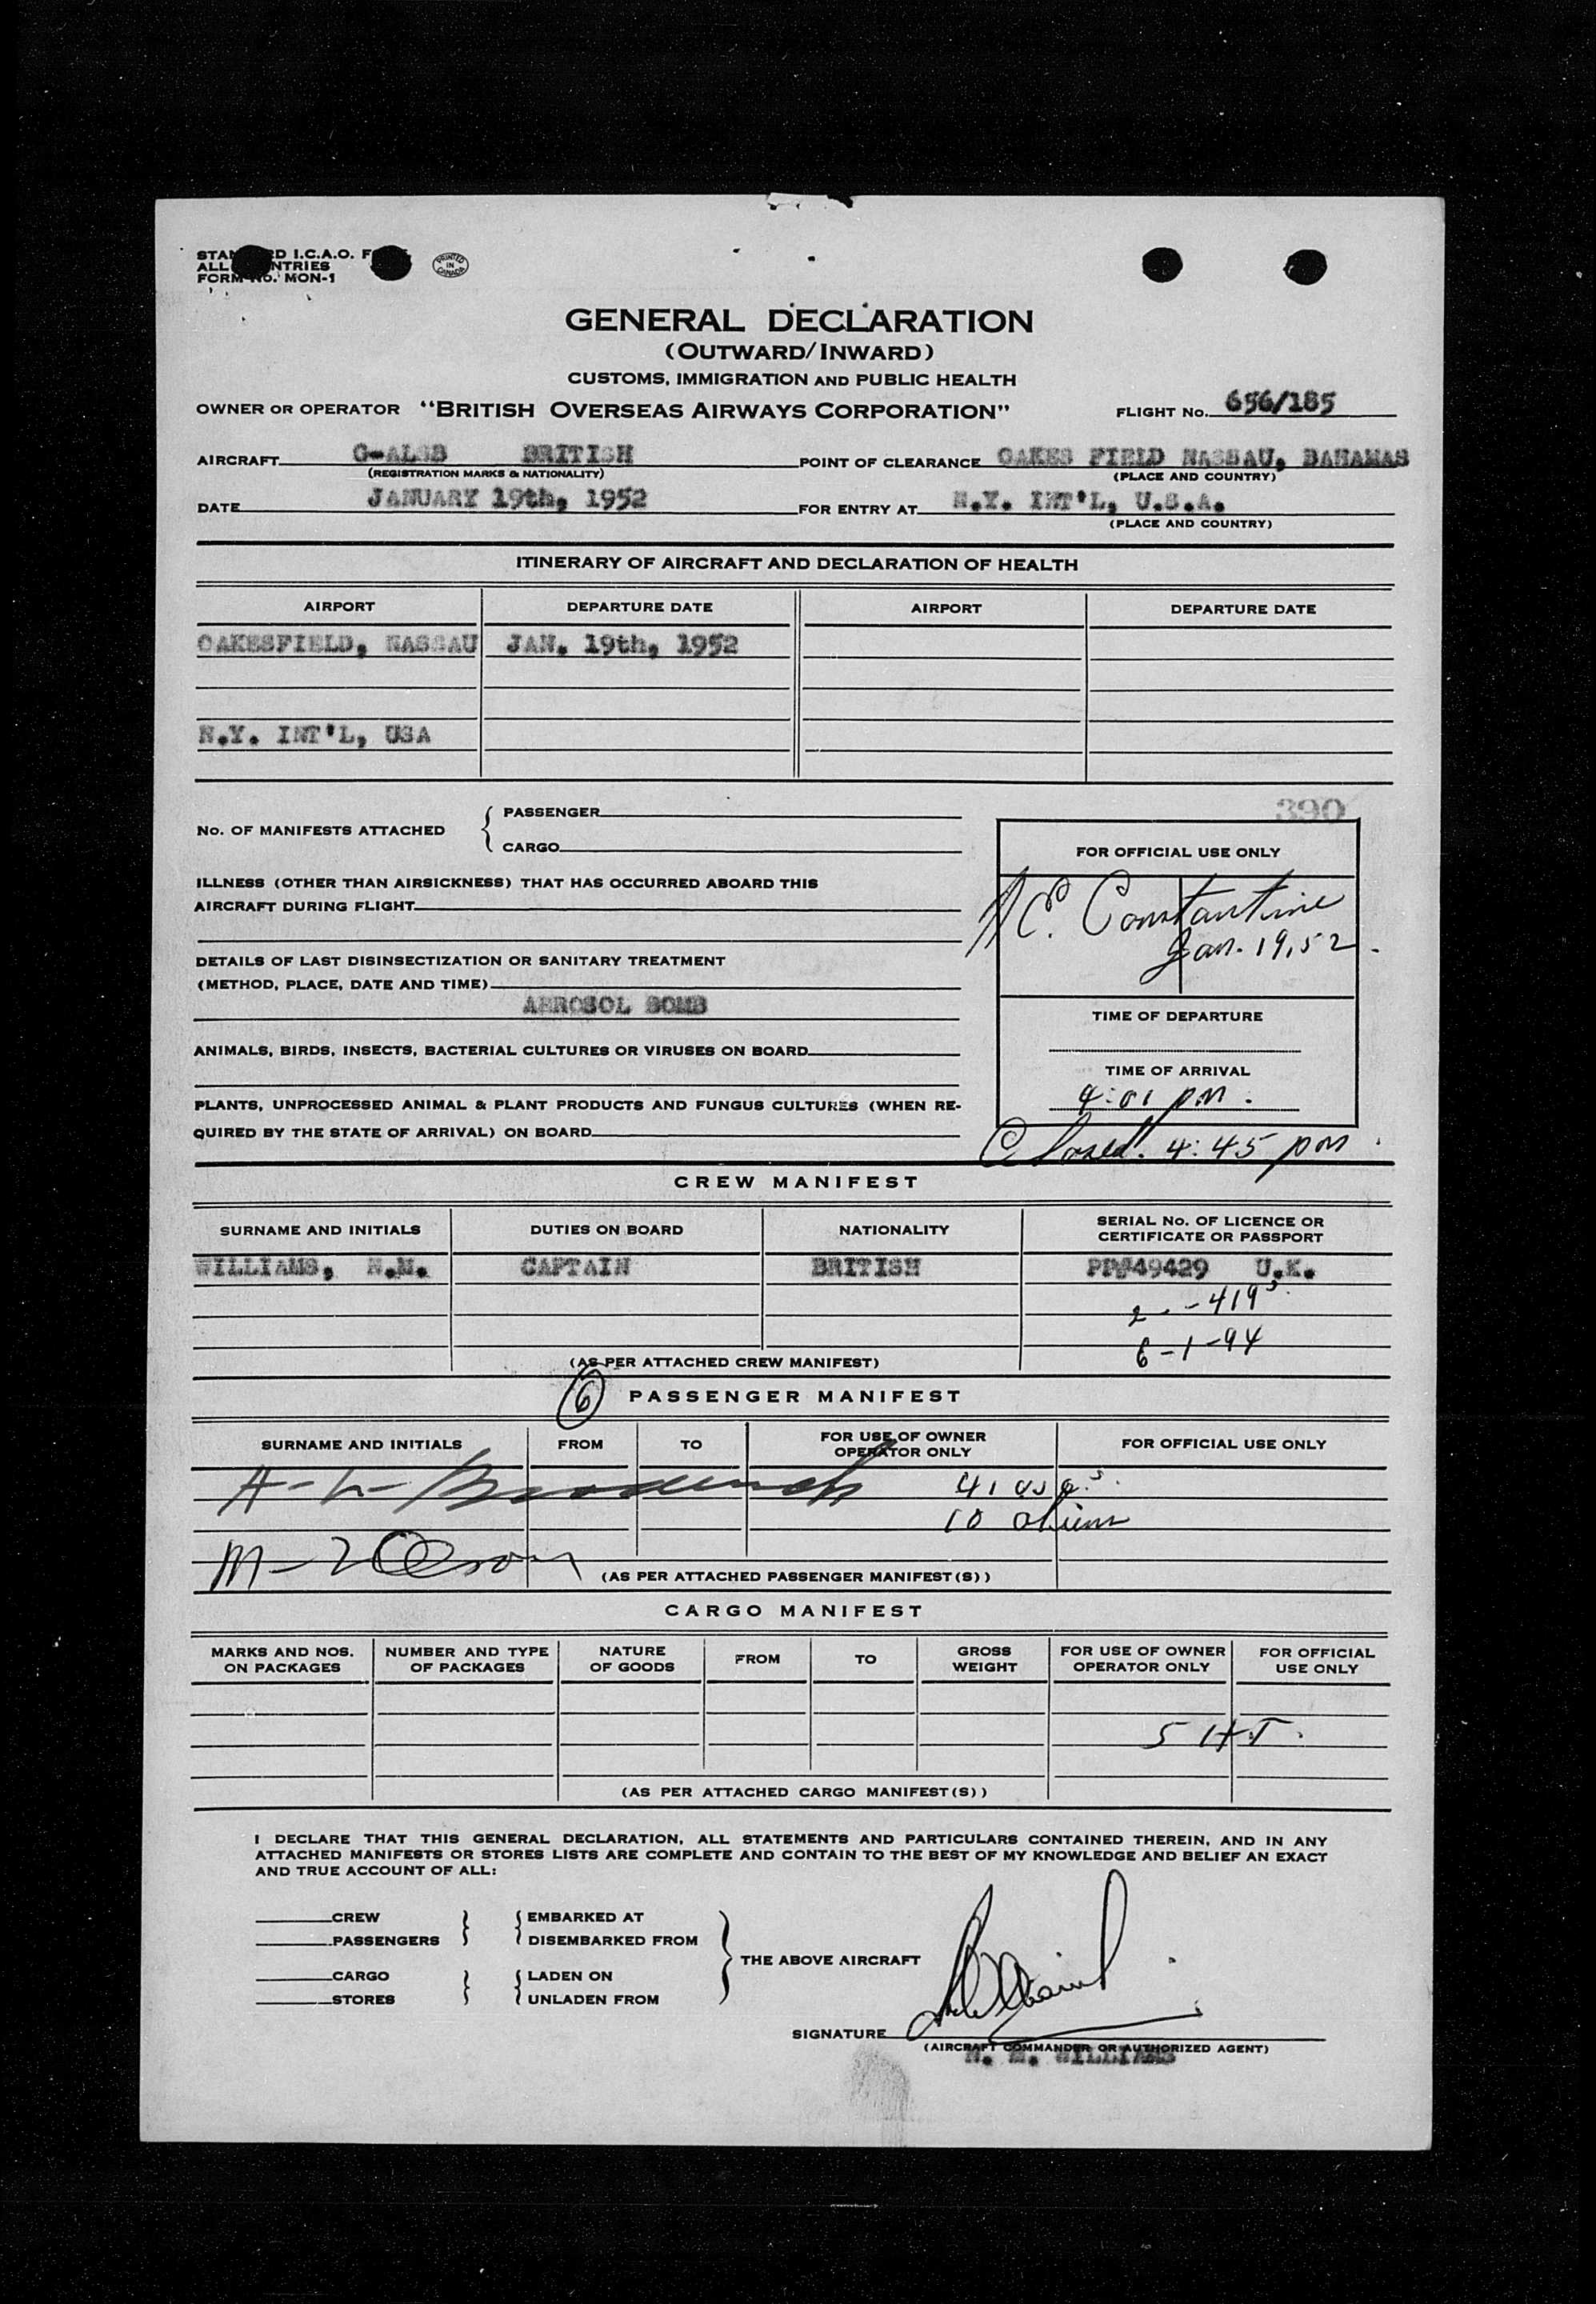 STANDARD I.C.A.O. FORM
ALL COUNTRIES
FORM No. MON-1
PRINTED IN CANADA
GENERAL DECLARATION
(OUTWARD/INWARD)
CUSTOMS, IMMIGRATION AND PUBLIC HEALTH
OWNER OR OPERATOR "BRITISH OVERSEAS AIRWAYS CORPORATION" FLIGHT No. 656/185
AIRCRAFT G-ALSB BRITISH POINT OF CLEARANCE OAKES FIELD NASSAU, BAHAMAS
(REGISTRATION MARKS & NATIONALITY) (PLACE AND COUNTRY)
DATE JANUARY 19th, 1952 FOR ENTRY AT N.Y. INT'L, U.S.A.
(PLACE AND COUNTRY)
ITINERARY OF AIRCRAFT AND DECLARATION OF HEALTH
AIRPORT DEPARTURE DATE AIRPORT DEPARTURE DATE
OAKESFIELD, NASSAU JAN. 19th, 1952
N.Y. INT'L, USA
390
No. OF MANIFESTS ATTACHED { PASSENGER
CARGO
FOR OFFICIAL USE ONLY
Constantine
Jan. 19, 52
ILLNESS (OTHER THAN AIRSICKNESS) THAT HAS OCCURRED ABOARD THIS
AIRCRAFT DURING FLIGHT
DETAILS OF LAST DISINSECTIZATION OR SANITARY TREATMENT
(METHOD, PLACE, DATE AND TIME)
AEROSOL BOMB
TIME OF DEPARTURE
ANIMALS, BIRDS, INSECTS, BACTERIAL CULTURES OR VIRUSES ON BOARD
TIME OF ARRIVAL
4:01 pm.
PLANTS, UNPROCESSED ANIMAL & PLANT PRODUCTS AND FUNGUS CULTURES (WHEN RE-
QUIRED BY THE STATE OF ARRIVAL) ON BOARD
Closed. 4:45 pm
CREW MANIFEST
SURNAME AND INITIALS DUTIES ON BOARD NATIONALITY SERIAL No. OF LICENCE OR
CERTIFICATE OR PASSPORT
WILLIAMS, N.M. CAPTAIN BRITISH PP#49429 U.K.
6-1-94
(AS PER ATTACHED CREW MANIFEST)
6 PASSENGER MANIFEST
SURNAME AND INITIALS FROM TO FOR USE OF OWNER
OPERATOR ONLY FOR OFFICIAL USE ONLY
10 aliens
(AS PER ATTACHED PASSENGER MANIFEST(S))
CARGO MANIFEST
MARKS AND NOS.
ON PACKAGES NUMBER AND TYPE
OF PACKAGES NATURE
OF GOODS FROM TO GROSS
WEIGHT FOR USE OF OWNER
OPERATOR ONLY FOR OFFICIAL
USE ONLY
(AS PER ATTACHED CARGO MANIFEST(S))
I DECLARE THAT THIS GENERAL DECLARATION, ALL STATEMENTS AND PARTICULARS CONTAINED THEREIN, AND IN ANY
ATTACHED MANIFESTS OR STORES LISTS ARE COMPLETE AND CONTAIN TO THE BEST OF MY KNOWLEDGE AND BELIEF AN EXACT
AND TRUE ACCOUNT OF ALL:
CREW EMBARKED AT
PASSENGERS DISEMBARKED FROM
THE ABOVE AIRCRAFT
CARGO LADEN ON
STORES UNLADEN FROM
SIGNATURE
(AIRCRAFT COMMANDER OR AUTHORIZED AGENT)
N. M. WILLIAMS